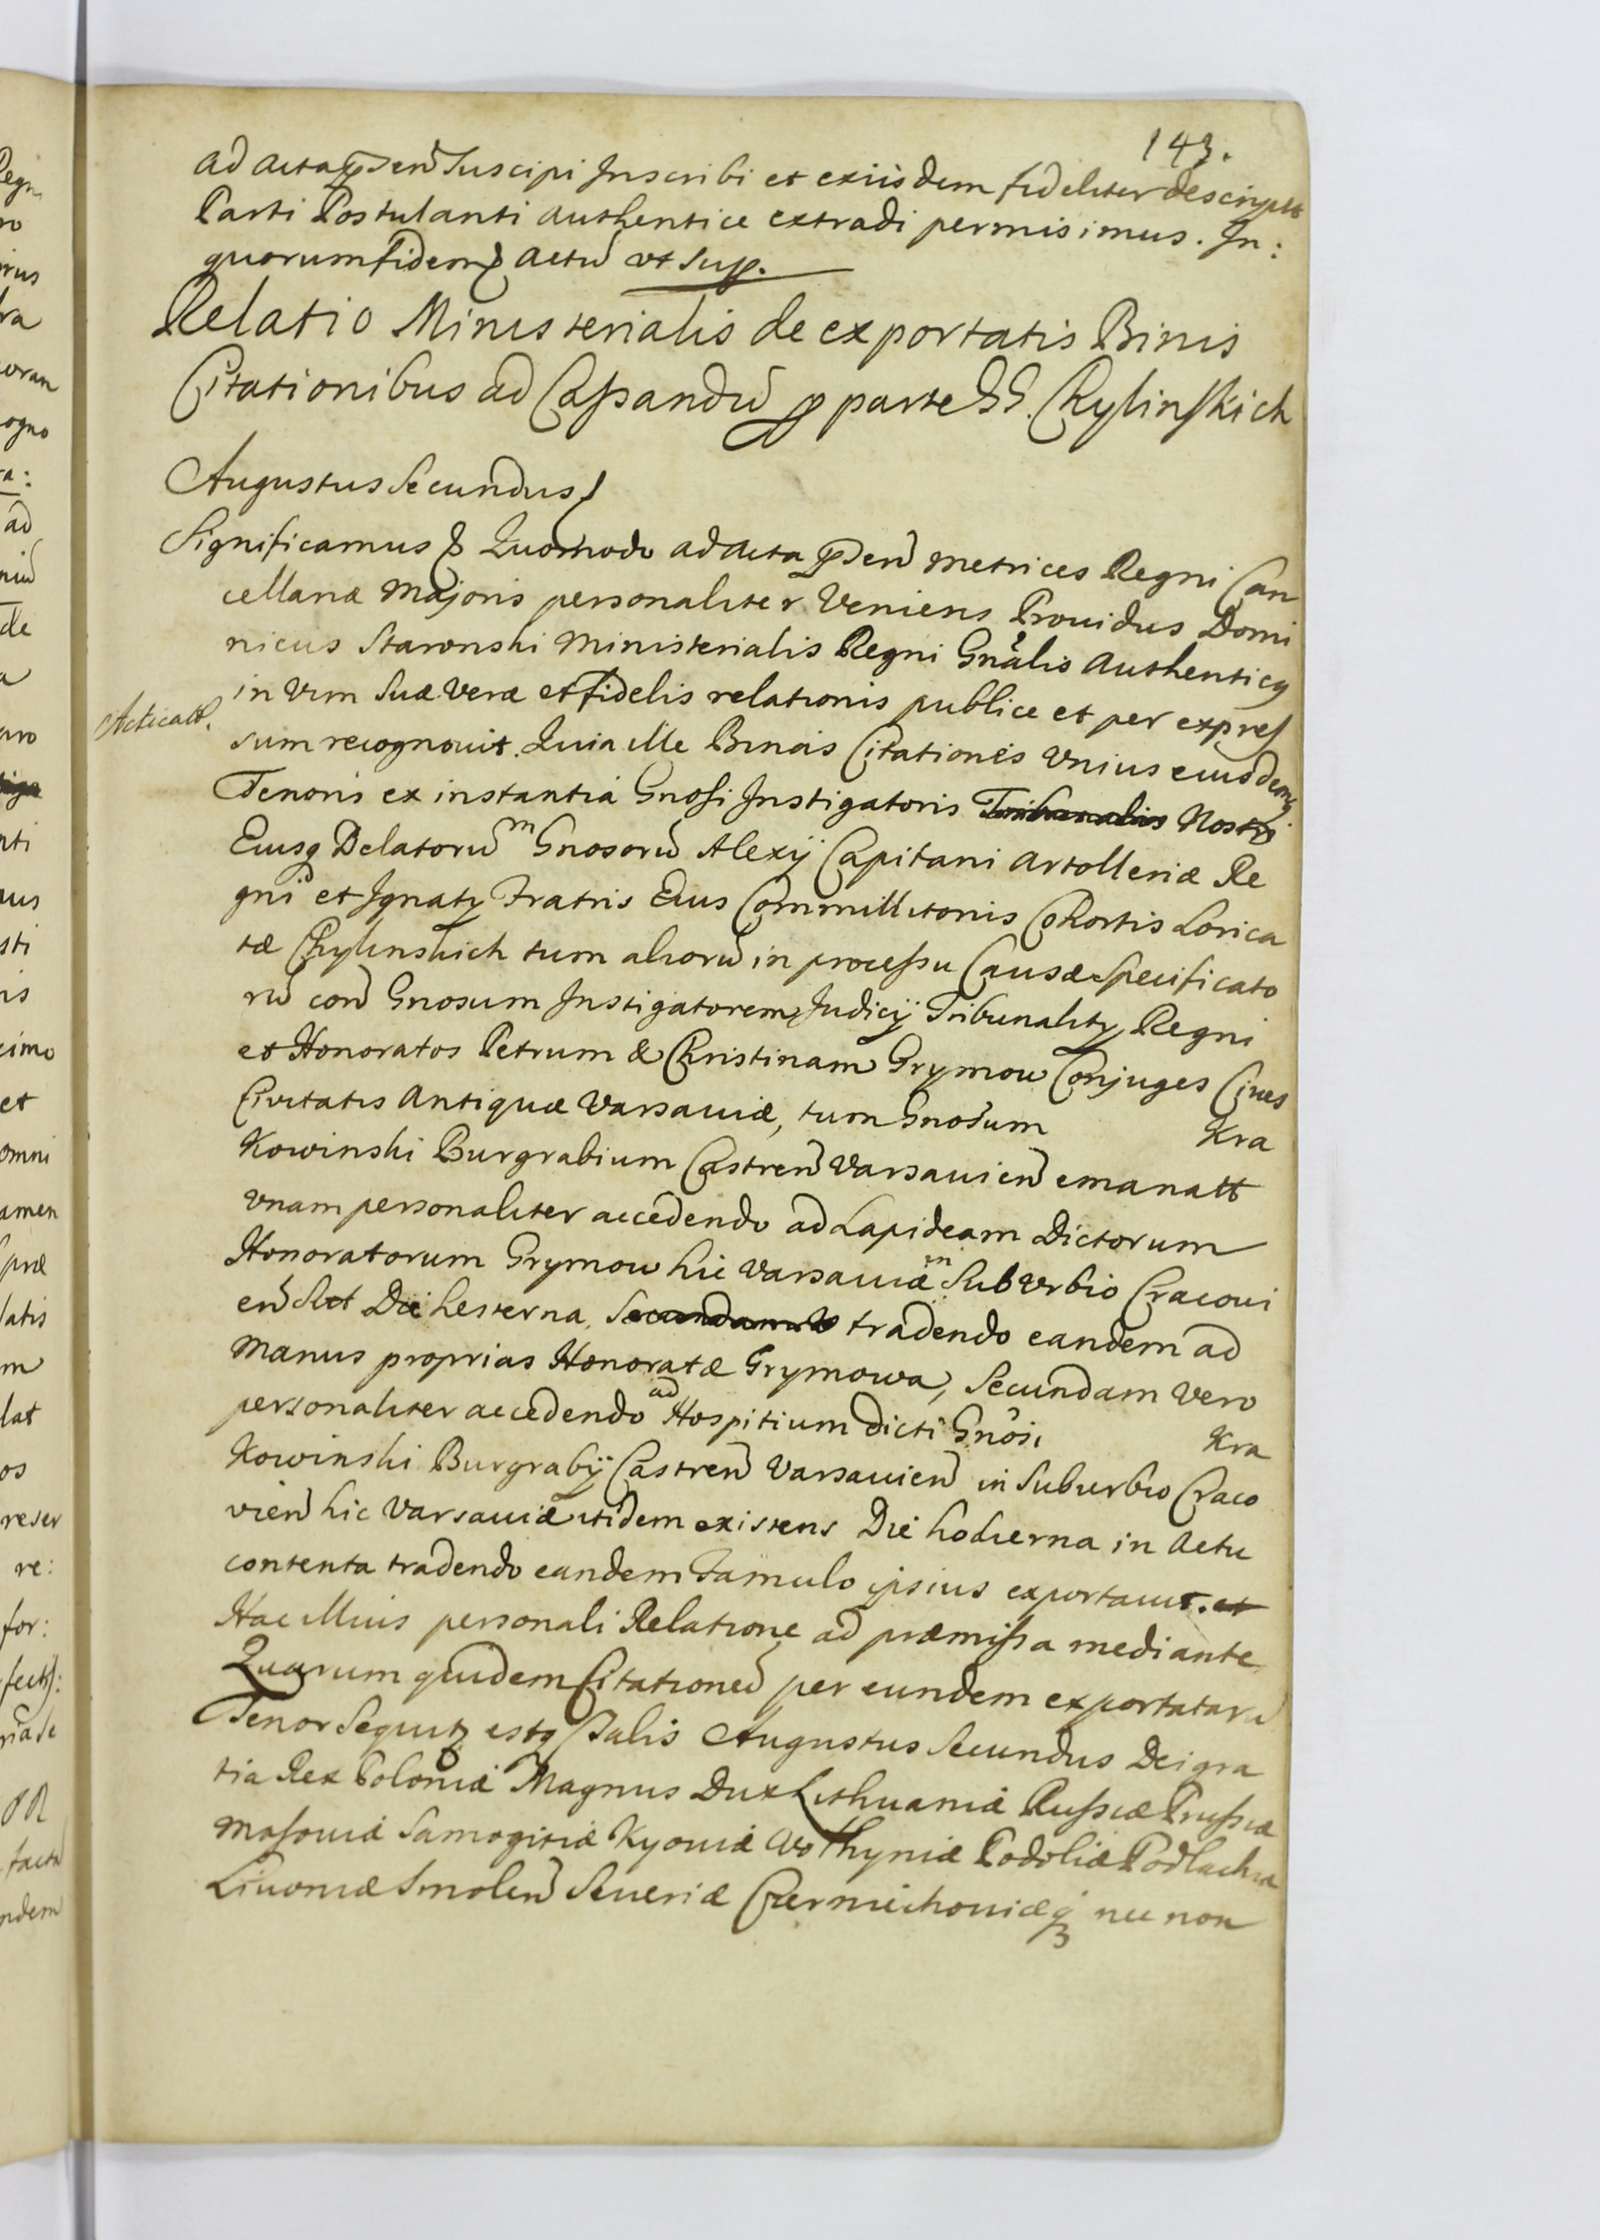 143.
ad acta pnseñ Suscipi Inscribi et exiisdem fideliter descriptt
Parti Postulanti authentice extradi permisimus. In:
quorum fidem actũ vt Sup.
Relatio Ministerialis de exportatis Binis
Citationibus ad Cassandũ p parte GG. Chylinskich
Augustus Secundus
Significamus & Quomodo ad acta pnseñ metrices Regni Can
cellariæ Majoris personaliter Veniens Prouidus Domi
nicus Staronski Ministerialis Regni Gnãlis authenticq
in Vim Suæ Veræ et fidelis relationis publice et per expres
Acticatt.
sum recognouit. Quia ille Binas Citationes Vnius eiusdemq
Tenoris ex instantia Gnosi Instigatoris Tribunalis Nostri
Eiusq Delatorũ m Gnosorũ Alexij Capitani artolleriæ Re
gni et Ignaty Fratris Eius Commilitonis Cohortis Lorica
tæ Chylinskich tum aliorũ in processu Causæ Specificato
rũ coñ Gnosum Instigatorem Judicij Tribunality Regni
et Honoratos Petrum & Christinam Grymow Conjuges Ciues
Ciuitatis Antiquæ Varsauiæ, tum Gnosum Kra
Kowinski Burgrabium Castreñ Varsauieñ emanatt
vnam personaliter accedendo ad Lapideam Dictorum
Honoratorum Grymow hic Varsauiæ in Sub Vrbio Cracoui
eñ Sitt Die hesterna, Secundam V tradendo eandem ad
Manus proprias Honoratæ Grymowa, Secundam Vero
personaliter accedendo ad Hospitium dicti Gnosi Kra
Kowinski Burgrabij Castreñ Varsauieñ in Suburbio Craco
vieñ hic Varsauiæ itidem existens Die hodierna in Actu
contenta tradendo eandem Famulo ipsius exportauit. et
Hac illius personali Relatione ad præmissa mediante
Quarum quidem Citationũ per eundem exportatarũ
Tenor Sequitz estq talis Augustus Secundus Dei gra
tia Rex Poloniæ Magnus Dux Lithuaniæ Russiæ Prussiæ
Masouiæ Samogitiæ Kyouiæ Volhyniæ Podoliæ Podlachiæ
Liuoniæ Smoleñ Seueriæ Czerniechouiæq nec non